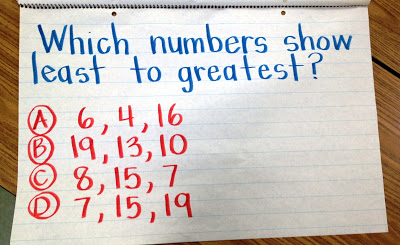 Which numbers show
least to greatest?
A 6, 4, 16
B 19, 13, 10
C 8, 15, 7
D 7, 15, 19